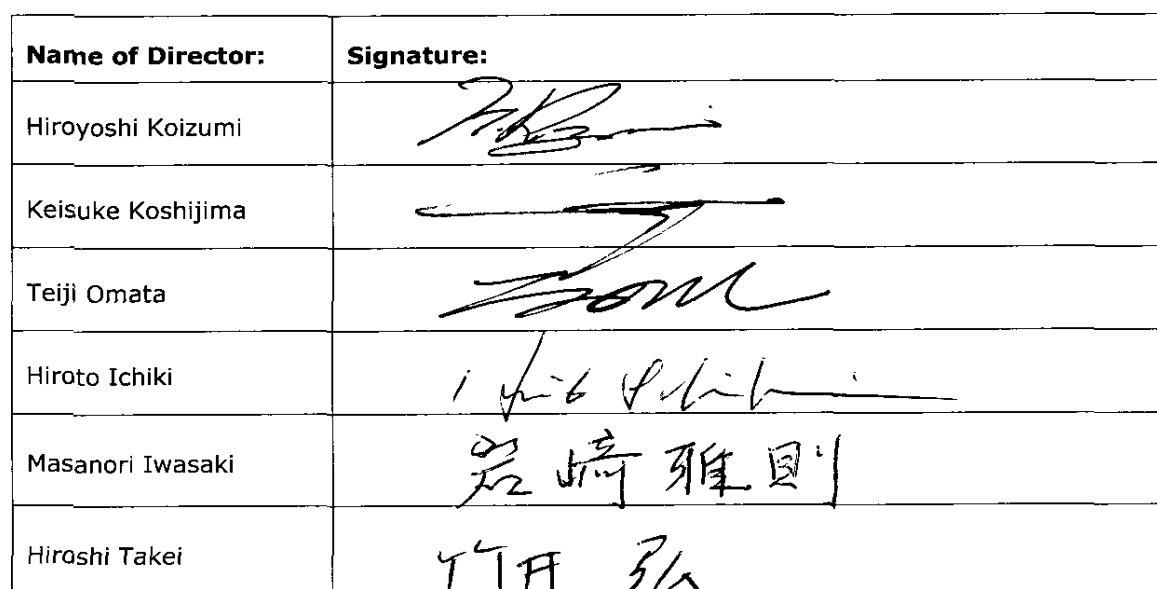 Name of Director: Signature:
Hiroyoshi Koizumi
Keisuke Koshijima
Teiji Omata
Hiroto Ichiki
Masanori Iwasaki 岩崎雅則
Hiroshi Takei 竹井 弘